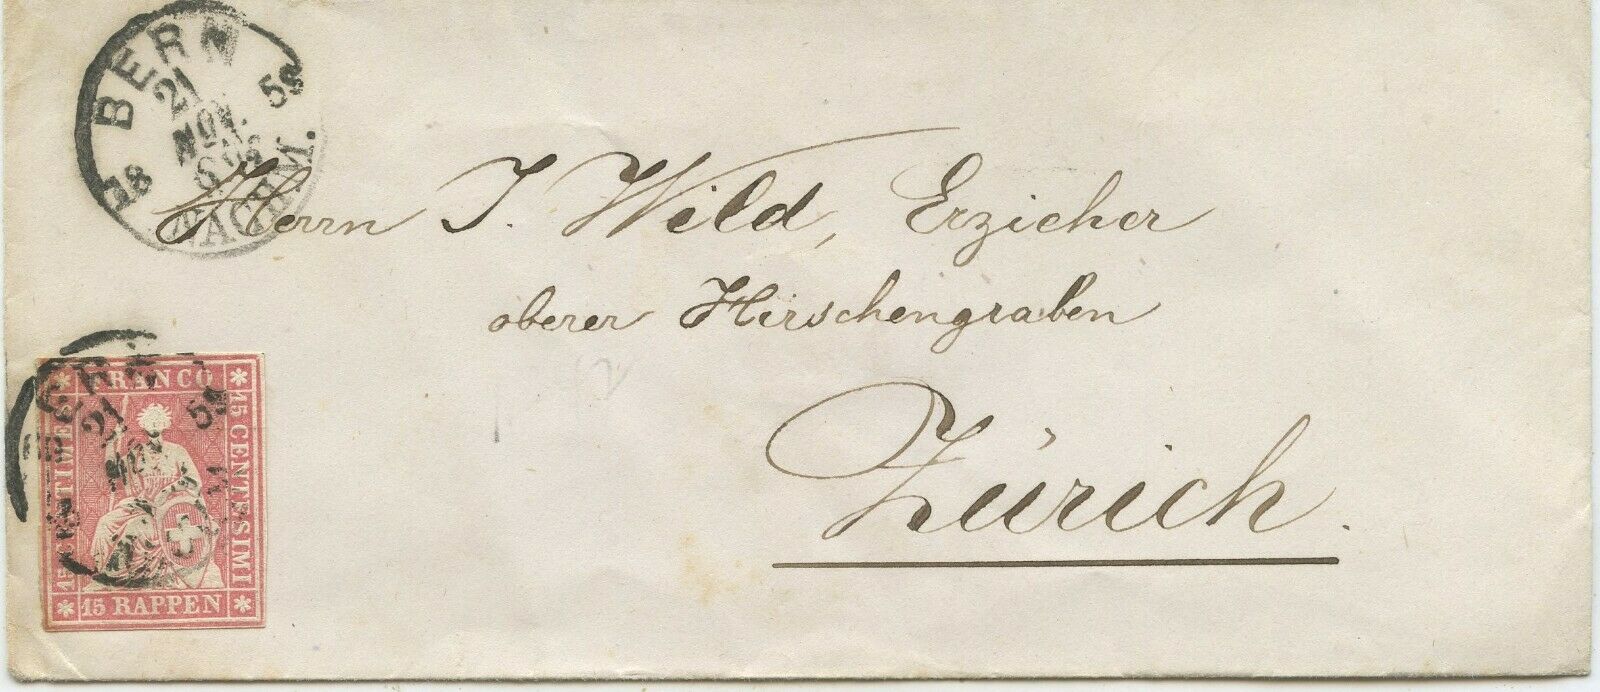 BERN
21
NOV.
18 59
NACHM.
Herrn J. Wild, Erzicher
oberer Hirschengraben
Zürich.
BERN
21
NOV
59
FRANCO
15 CENTESIMI
15 RAPPEN